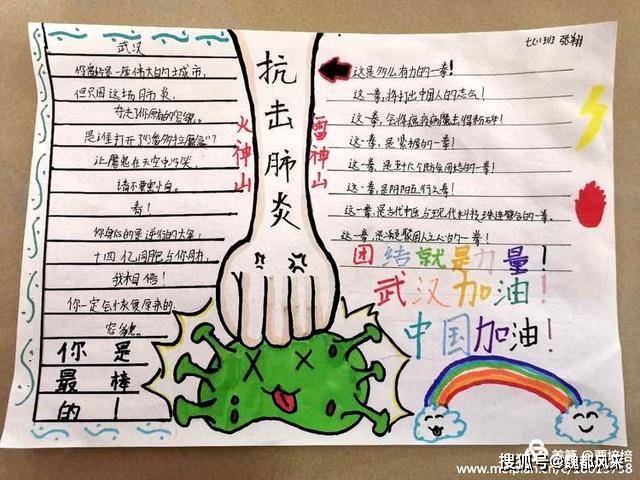 武汉
你曾经是一座伟大的城市，
但只因这场肺炎，
夺走了你原始的容貌。
是谁打开了"潘多拉魔盒"？
让魔鬼在天空中
请不要害怕。
看！
你身后的是
十四亿同胞与你同力，
我相信
你一定会恢复原来的
容貌。
你是
最棒
的！
抗击肺炎
火神山
雷神山
七(1)班 张翔
这是多么有力的一拳！
这一拳，将打出中国人的志气！
这一拳，会将瘟疫病魔击得粉碎！
这一拳，是紧握的一拳！
这一拳，是五十六个民族团结的一拳！
这一拳，是阴阳五行之拳！
这一拳，是古代中医与现代科技珠连璧合的一拳。
这一拳，是凝聚国人之心的一拳！
团结就是力量！
武汉加油！
中国加油！
美篇 @贾培培
搜狐号@魏都风采